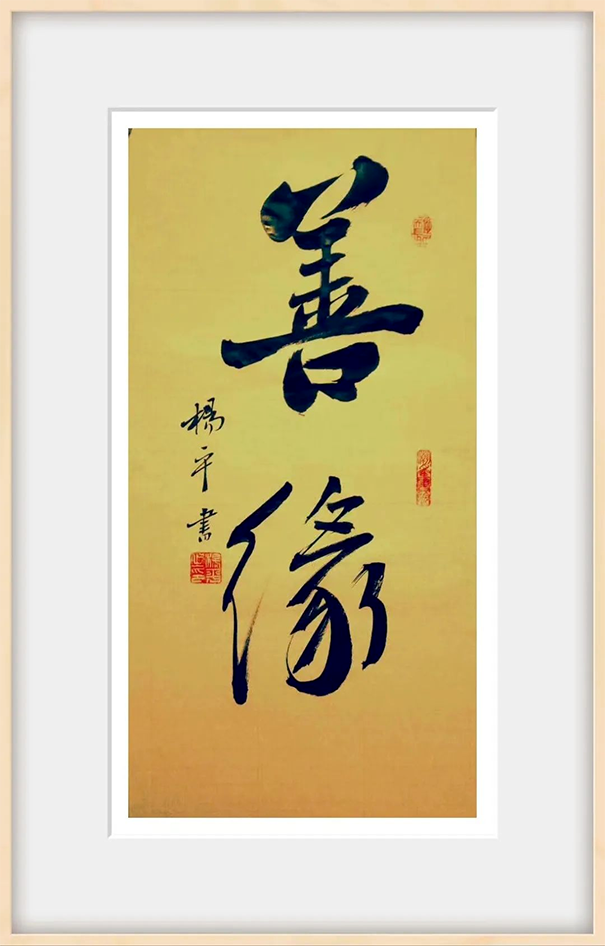 善緣
楊平書